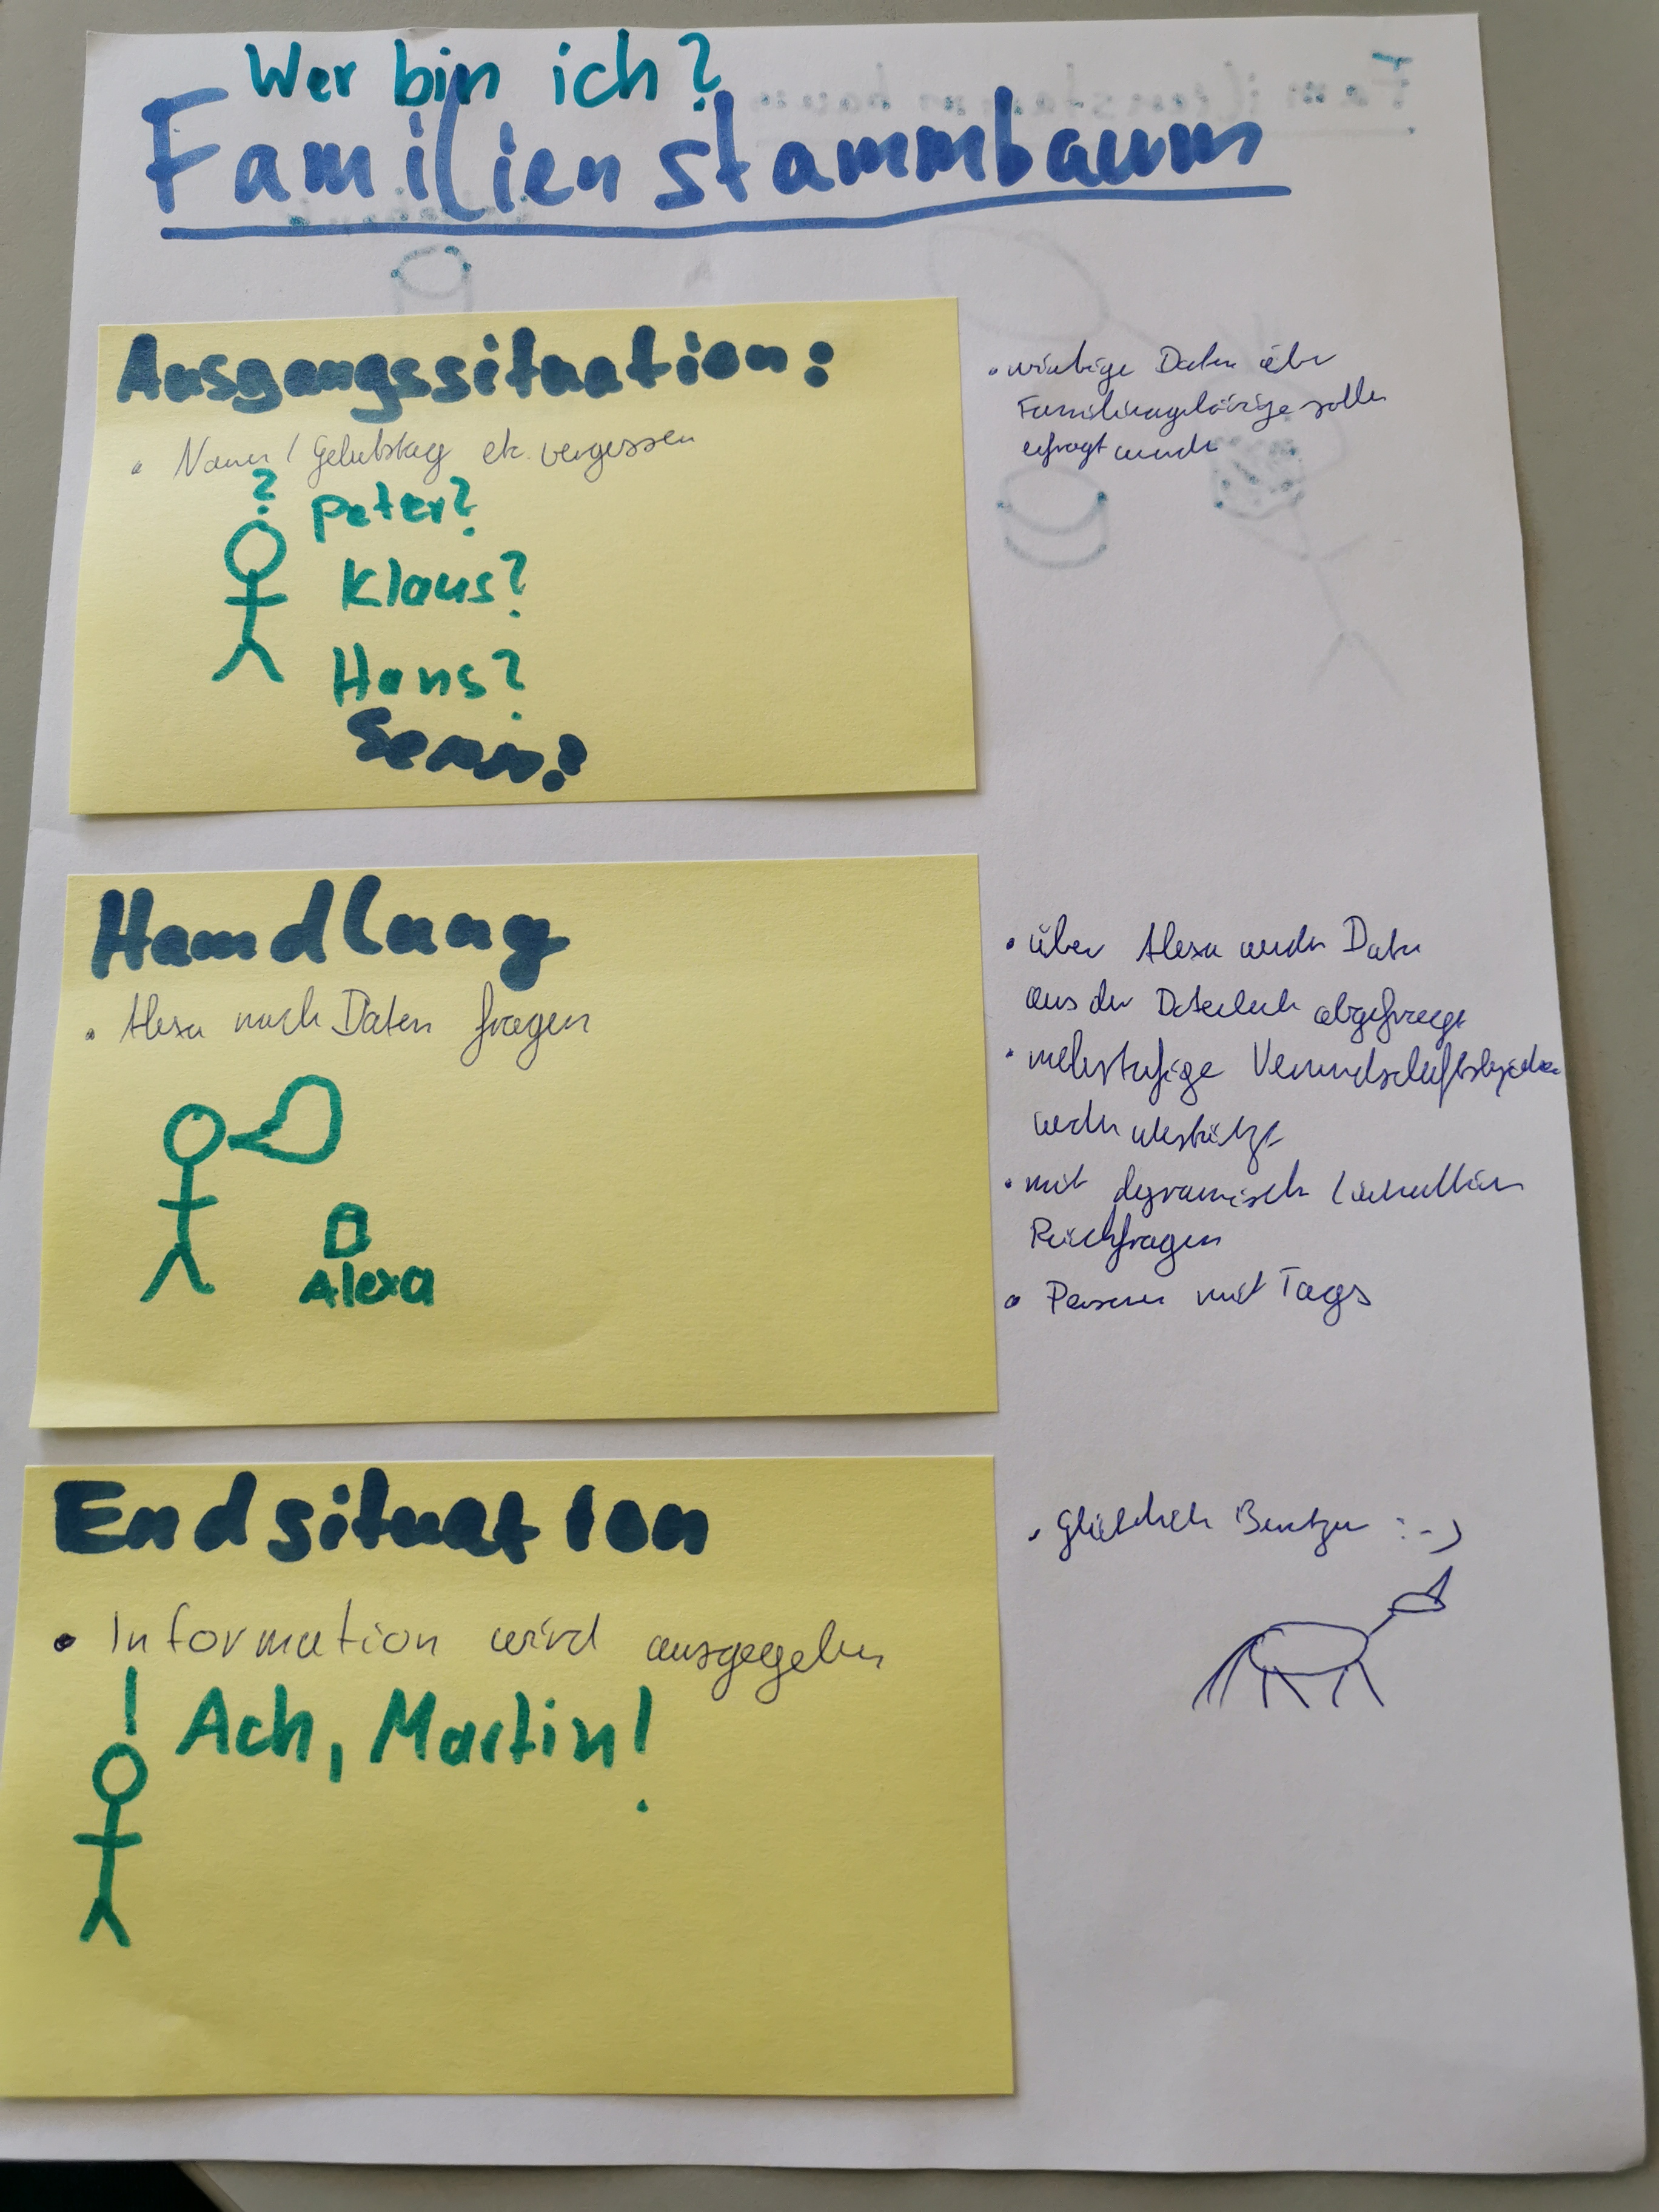 Wer bin ich?
Familienstammbaum
Ausgangssituation:
• Namen / Geburtstag etc. vergessen
?
Peter?
Klaus?
Hans?
• wichtige Daten über
Familienangehörige sollen
erfragt werden
Handlung
• Alexa nach Daten fragen
Alexa
• über Alexa werden Daten
aus der Datenbank abgefragt
• mehrstufige Verwandschaftsbeziehungen
werden unterstützt
• mit dynamischen /
Rückfragen
• Personen mit Tags
Endsituation
• Information wird ausgegeben
!
Ach, Martin!
• Glücklicher Benutzer :-)